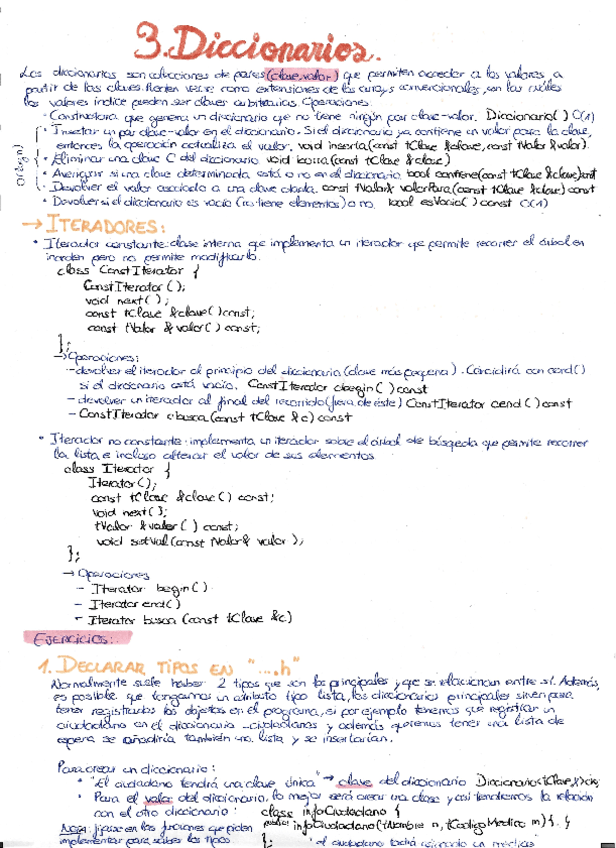 3. Diccionarios.
Los diccionarios son colecciones de pares (clave, valor) que permiten acceder a los valores a
partir de las claves. Pueden verse como extensiones de los arrays convencionales, en los cuáles
los valores índice pueden ser claves arbitrarias. Operaciones:
· Constructora que genera un diccionario que no tiene ningún par clave-valor. Diccionario() O(1)
· Insertar un par clave-valor en el diccionario. Si el diccionario ya contiene un valor para la clave,
entonces la operación actualiza el valor. void inserta(const tClave &clave, const tValor &valor)
O(log n)
· Eliminar una clave C del diccionario void borra(const tClave &clave)
· Averiguar si una clave determinada está o no en el diccionario. bool contiene(const tClave &clave)const
· Devolver el valor asociado a una clave dada. const tValor& valorPara(const tClave &clave) const
· Devolver si el diccionario es vacío (no tiene elementos) o no. bool esVacio() const O(1)
→ ITERADORES:
· Iterador constante: clase interna que implementa un iterador que permite recorrer el árbol en
inorden pero no permite modificarlo.
class ConstIterator {
ConstIterator();
void next();
const tClave &clave() const;
const tValor &valor() const;
};
→ Operaciones:
- devolver el iterador al principio del diccionario (clave más pequeña). Coincidirá con cend()
si el diccionario está vacío. ConstIterator cbegin() const
- devolver un iterador al final del recorrido (fuera de éste) ConstIterator cend() const
- ConstIterator cbusca(const tClave &c) const
· Iterador no constante: implementa un iterador sobre el árbol de búsqueda que permite recorrer
la lista e incluso alterar el valor de sus elementos
class Iterator {
Iterator();
const tClave &clave() const;
void next();
tValor &valor() const;
void setVal(const tValor& valor);
};
→ Operaciones
- Iterator begin()
- Iterator end()
- Iterator busca (const tClave &c)
EJERCICIOS:
1. DECLARAR TIPOS EN "....h"
Normalmente suele haber 2 tipos que son los principales y que se relacionan entre sí. Además,
es posible que tengamos un atributo tipo lista, los diccionarios principales sirven para
tener registrados los objetos en el programa, si por ejemplo tenemos que registrar un
ciudadano en el diccionario -ciudadanos y además queremos tener una lista de
espera se añadiría también una lista y se insertarían.
Para crear un diccionario:
· "El ciudadano tendrá una clave única" → clave del diccionario Diccionario<tClave,
· Para el valor del diccionario, lo mejor será crear una clase y así tendremos la relación
con el otro diccionario: class infoCiudadano {
public: infoCiudadano(tNombre n, tCodigoMedico m){ }
Nota: fijarse en las funciones que piden
implementar para saber los tipos.
};
· el ciudadano tendrá asignado un médico